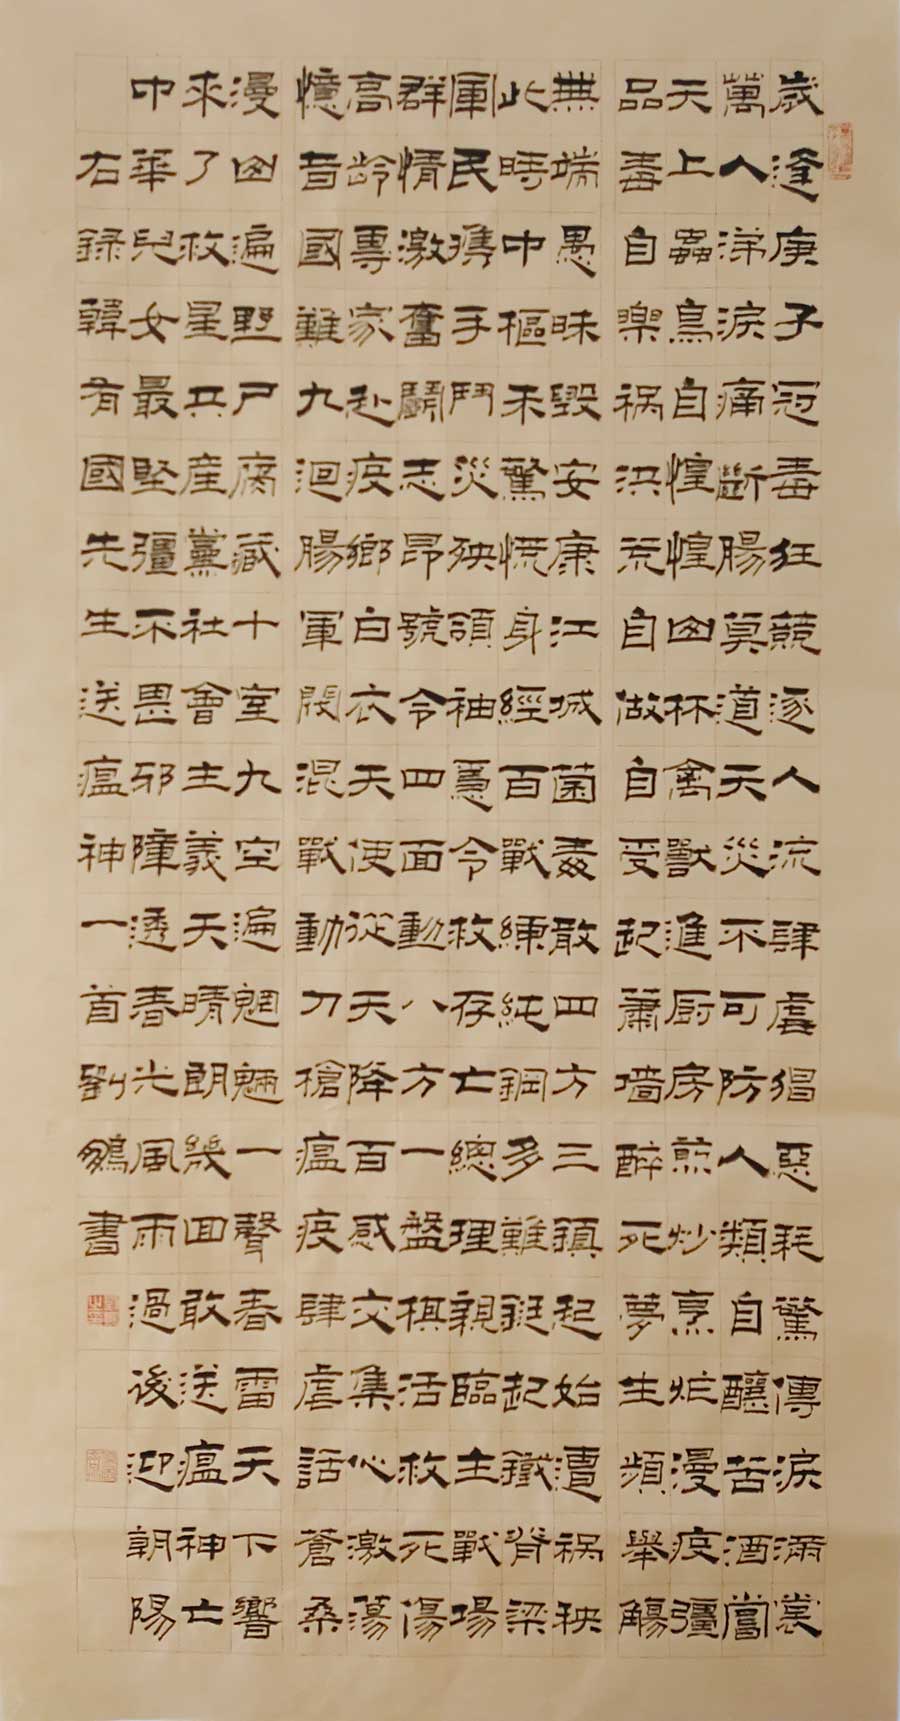 歲逢庚子冠毒狂競逐人流肆虐猖惡耗驚傳淚滿裳
萬人涕淚痛斷腸莫道天災不可防人類自釀苦酒嘗
天上蟲鳥自惶惶山林禽獸進厨房煎炒烹忙漫疫疆
品毒自樂禍洪荒自做自受起蕭墻醉死夢生頻舉觴
無端愚昧毀安康江城菌毒敢四方三鎮起始遭禍秧
此時中樞未驚慌身經百戰練純鋼多難挺起鐵脊梁
軍民携手鬥災殃領袖憲令救存亡總理親臨主戰場
群情激奮鬭志昂號令四面動八方一盤棋活救死傷
高齡專家赴疫鄉白衣天使從天降百感交集心激蕩
憶昔國難九迴腸軍閥混戰動刀槍瘟疫肆虐話蒼桑
漫山遍野尸腐藏十室九空遍魍魎一聲春雷天下響
來了救星共產黨社會主義天晴朗幾回敢送瘟神亡
中華兒女最堅彊不畏邪障透春光風雨過後迎朝陽
右錄韓有國先生送瘟神一首劉書